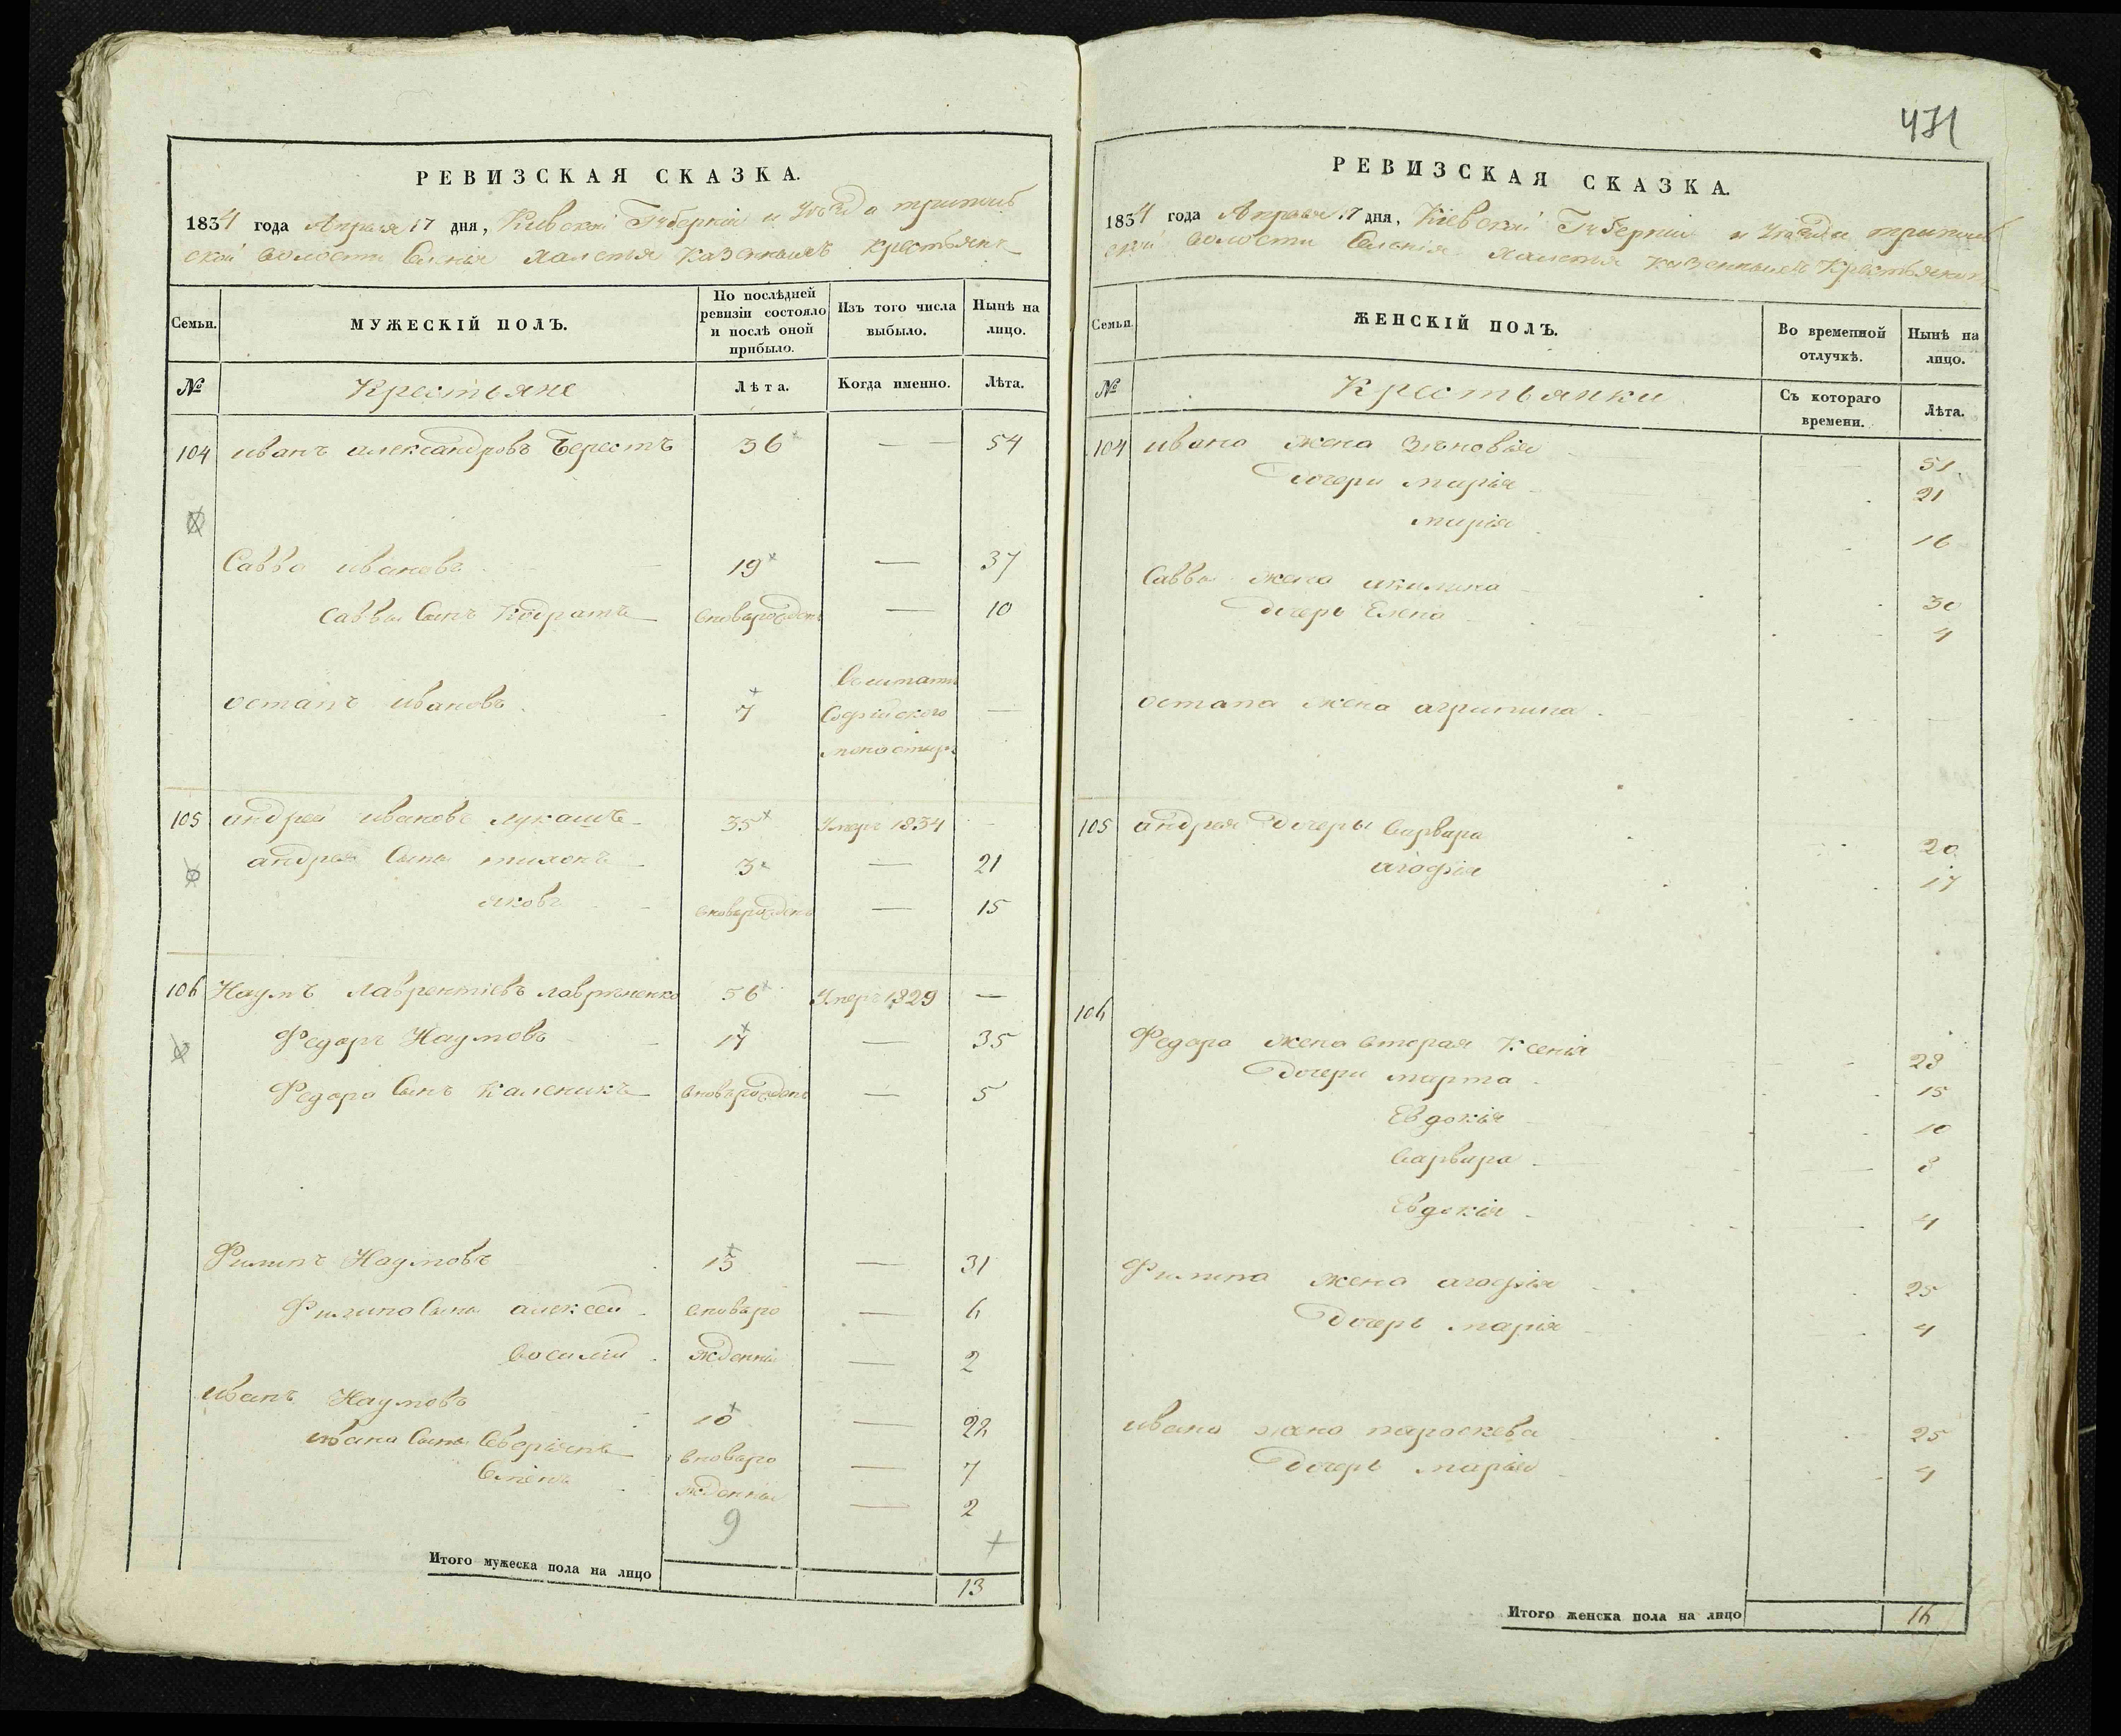 РЕВИЗСКАЯ СКАЗКА.
1834 года Апреля 17 дня, Киевской Губернии и Уѣзда трипол
ской волости Селения Халепья казенныхъ крестьянъ
Семьи.
МУЖЕСКІЙ ПОЛЪ.
По послѣдней ревизіи состояло и послѣ оной прибыло.
Изъ того числа выбыло.
Нынѣ на лицо.
№ Крестьяне Лѣта. Когда именно. Лѣта.
104 иванъ александровъ Берестъ 36 — 54
Савва ивановъ 19 — 37
Саввы Сынъ Кодратъ вновърожденъ — 10
остапъ ивановъ 7 Софийского —
монастыря
105 андрей ивановъ лукашъ 35 Умеръ 1834 —
андрея Сыны 3 — 21
яковъ вновърожденъ — 15
106 Наумъ лаврентіевъ лавриненко 56 Умеръ 1829 —
Федоръ Наумовъ 17 — 35
Федора Сынъ каленикъ вновърожденъ — 5
Филипъ Наумовъ 13 — 31
Филипа Сыны алексей вновьро — 6
василий жденни — 2
иванъ Наумовъ 10 — 28
ивана Сыны Северіянъ вновьро — 7
Семенъ жденны — 2
9
Итого мужеска пола на лицо 13
471
РЕВИЗСКАЯ СКАЗКА.
1834 года Апреля 17 дня, Киевской Губернии и Уѣзда трипол
ской волости Селения Халепья казенныхъ Крестьянъ
Семьи.
ЖЕНСКІЙ ПОЛЪ.
Во временной отлучкѣ.
Нынѣ на лицо.
№ Крестьянки Съ котораго времени. Лѣта.
104 ивана жена Зѣновія 51
Дочери марія 21
марія 16
Саввы жена акилина 30
дочерь Елена 4
остапа жена агрипина
105 андрея Дочеры варвара 20
агафія 17
106
Федора жена вторая Ксенія 28
Дочери марта 15
Евдокія 10
варвара 8
Евдокія 4
Филипа жена агафія 25
Дочерь марія 4
ивана жена параскева 25
Дочерь марья 4
Итого женска пола на лицо 16